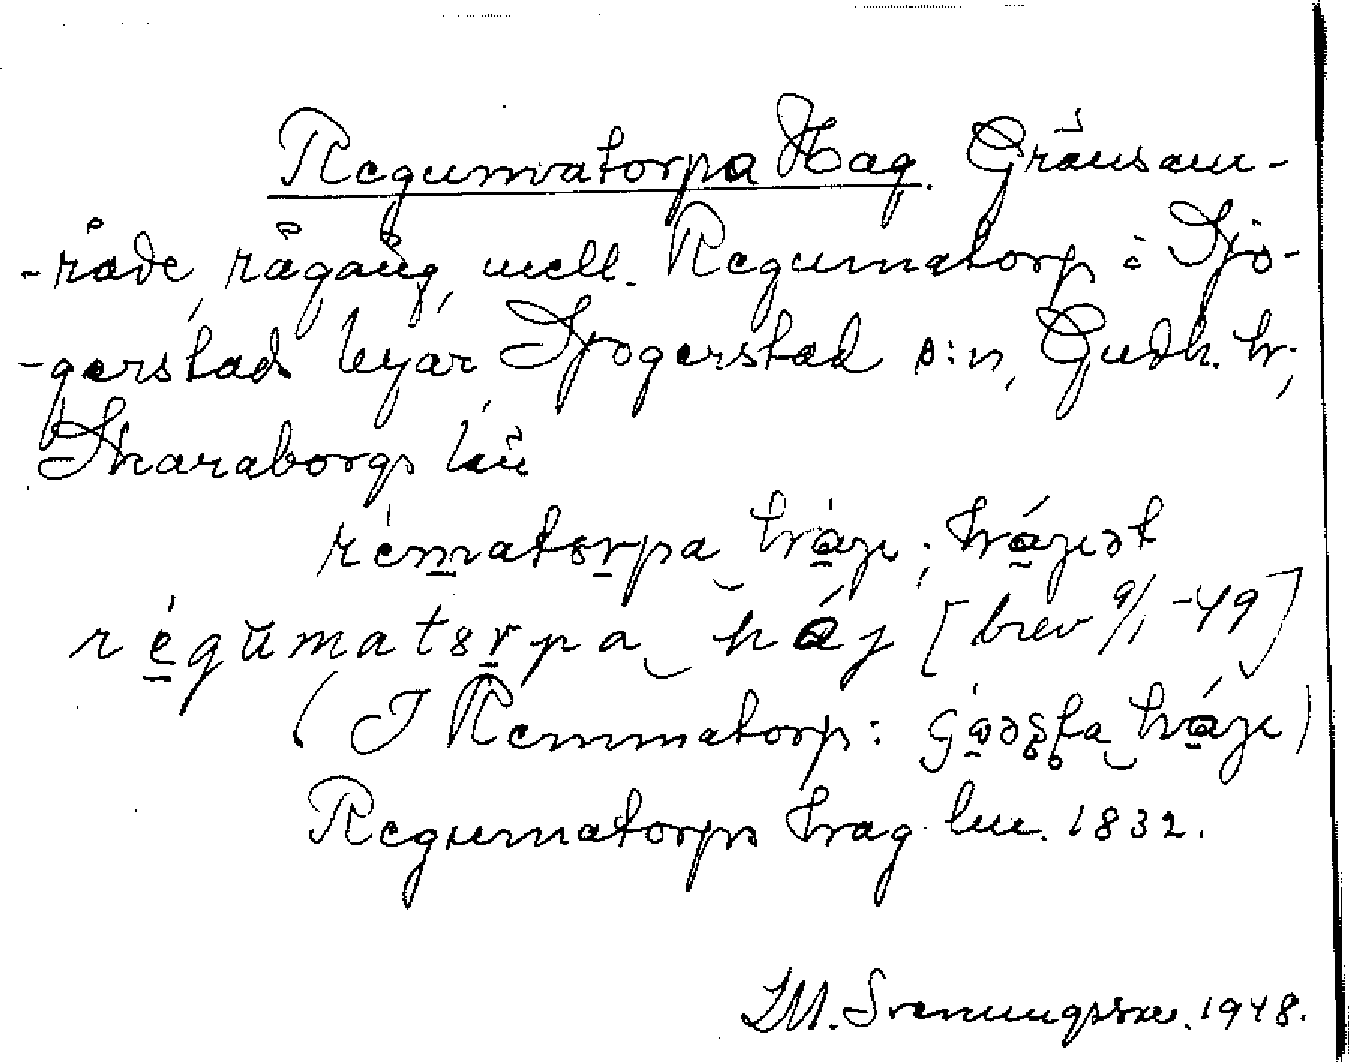 Regumatorpa Hag. Gränsom-
-råde, rågång, mell. Regumatorp i Sjo-
-gerstads byar, Sjogerstad s:n, Gudh. hr,
Skaraborgs län
rématorpa hág
régŭmatorpa hág [brev 9/1 -49]
( I Remmatorp:
Regumatorps hag lm. 1832.
LM. Svenungsson. 1948.